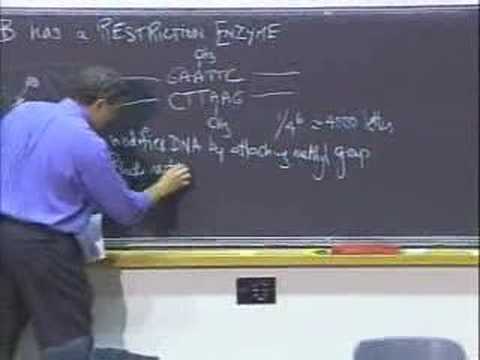 B HAS A RESTRICTION ENZYME
CH3
GAATTC
CTTAAG
CH3 1/4^6 ≈ 4000 letters
modifies DNA by attaching methyl group